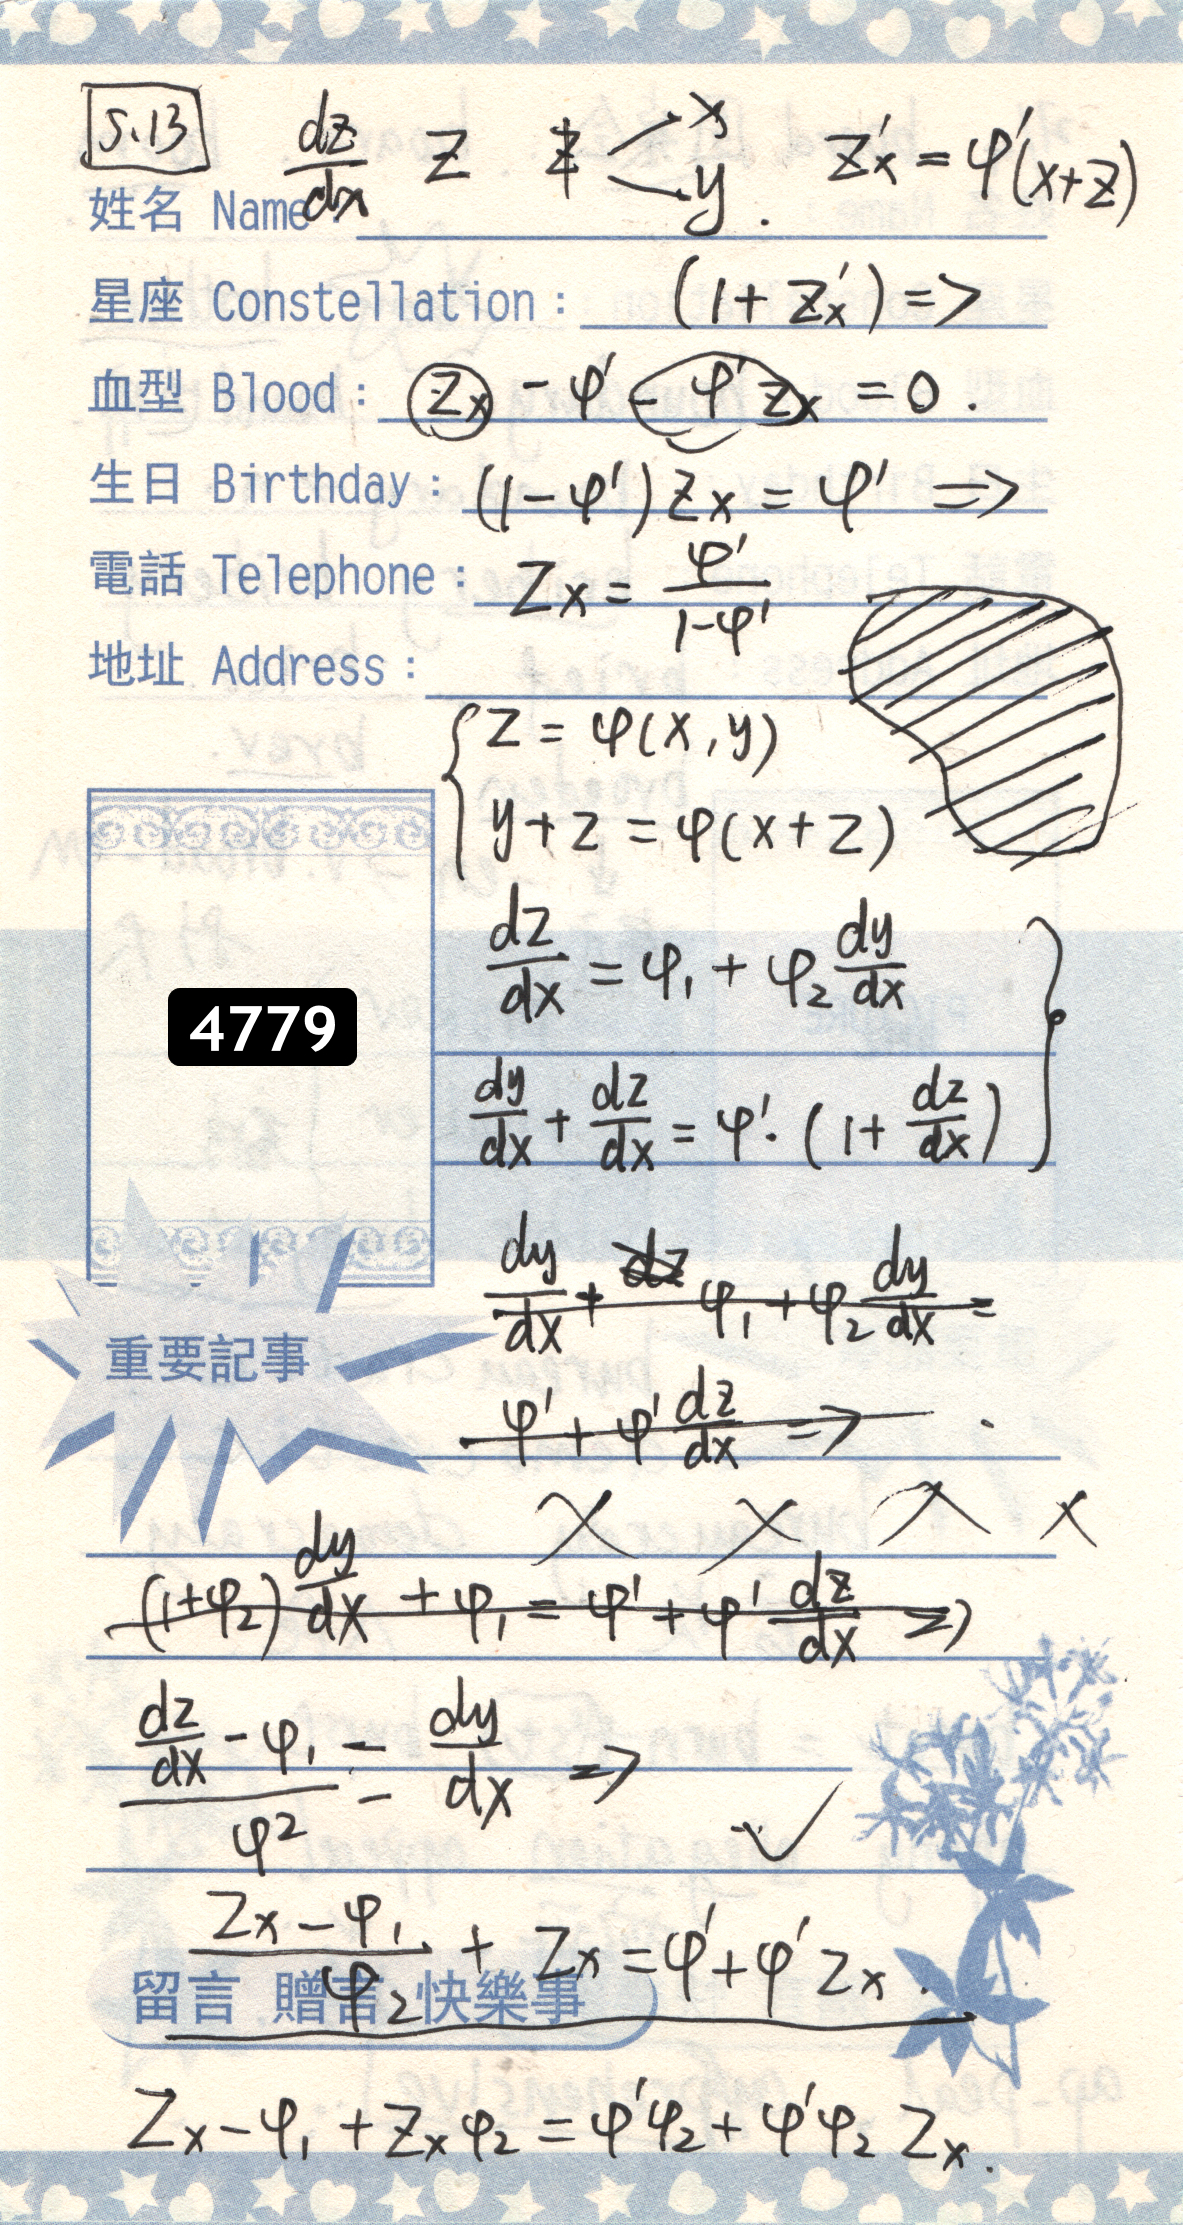 5.13 dz/dx Z z < x y . Z'x = φ'(x+z)
姓名 Name
星座 Constellation : (1 + Z'x) =>
血型 Blood : Zx - φ' - φ'Zx = 0 .
生日 Birthday : (1-φ')Zx = φ' =>
電話 Telephone : Zx = φ'/(1-φ')
地址 Address :
{ z = φ(x,y)
y+z = φ(x+z)
dz/dx = φ₁ + φ₂ dy/dx }
4779
dy/dx + dz/dx = φ'· (1+ dz/dx)
dy/dx + dz φ₁ + φ₂ dy/dx =
重要記事
φ' + φ' dz/dx => .
x x x x
(1+φ₂) dy/dx + φ₁ = φ' + φ' dz/dx =>
(dz/dx - φ₁)/φ2 = dy/dx =>
✓
(Zx - φ₁)/φ₂ + Zx = φ' + φ' Zx .
留言 贈言 快樂事
Zx - φ₁ + Zxφ₂ = φ'φ₂ + φ'φ₂ Zx .